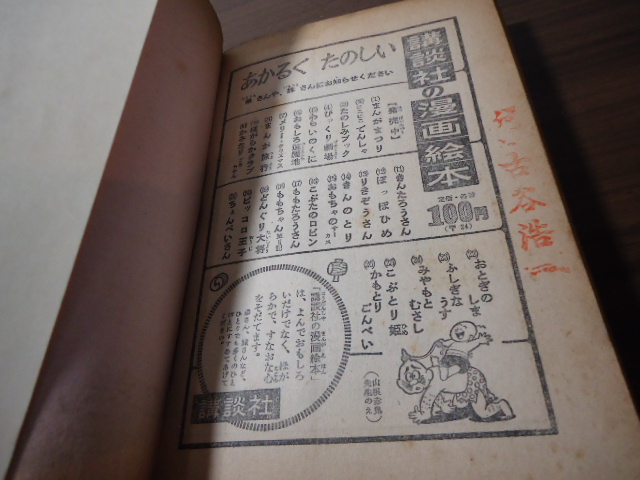 講談社の漫画絵本
定価・各冊
100円
(〒24)
あかるく たのしい
"弟"さんや、"妹"さんにお知らせください
【発売中】
(1)まんがまつり
でんしゃ
たのしみブック
びっくり劇場
おもいのくに
おもしろ遊園地
メリー・クリスマス
まんが旅行
ほがらかクラブ
きんたろうさん
ぽっぽひめ
りきぞうさん
きんのとり
おもちゃの
こぶたのロビン
ももたろうさん
ももちゃん
どんぐり大将
ピッコロ王子
ちょんべいさん
おとぎの しま
ふしぎな うす
みやもと むさし
こぶとり姫
かもとり ごんべい
「講談社の漫画絵本」
は、よんでおもしろ
いだけでなく、ほが
らかで、すなおな心
をそだてます。
弟さん、妹さんなど、
講談社
古谷浩一